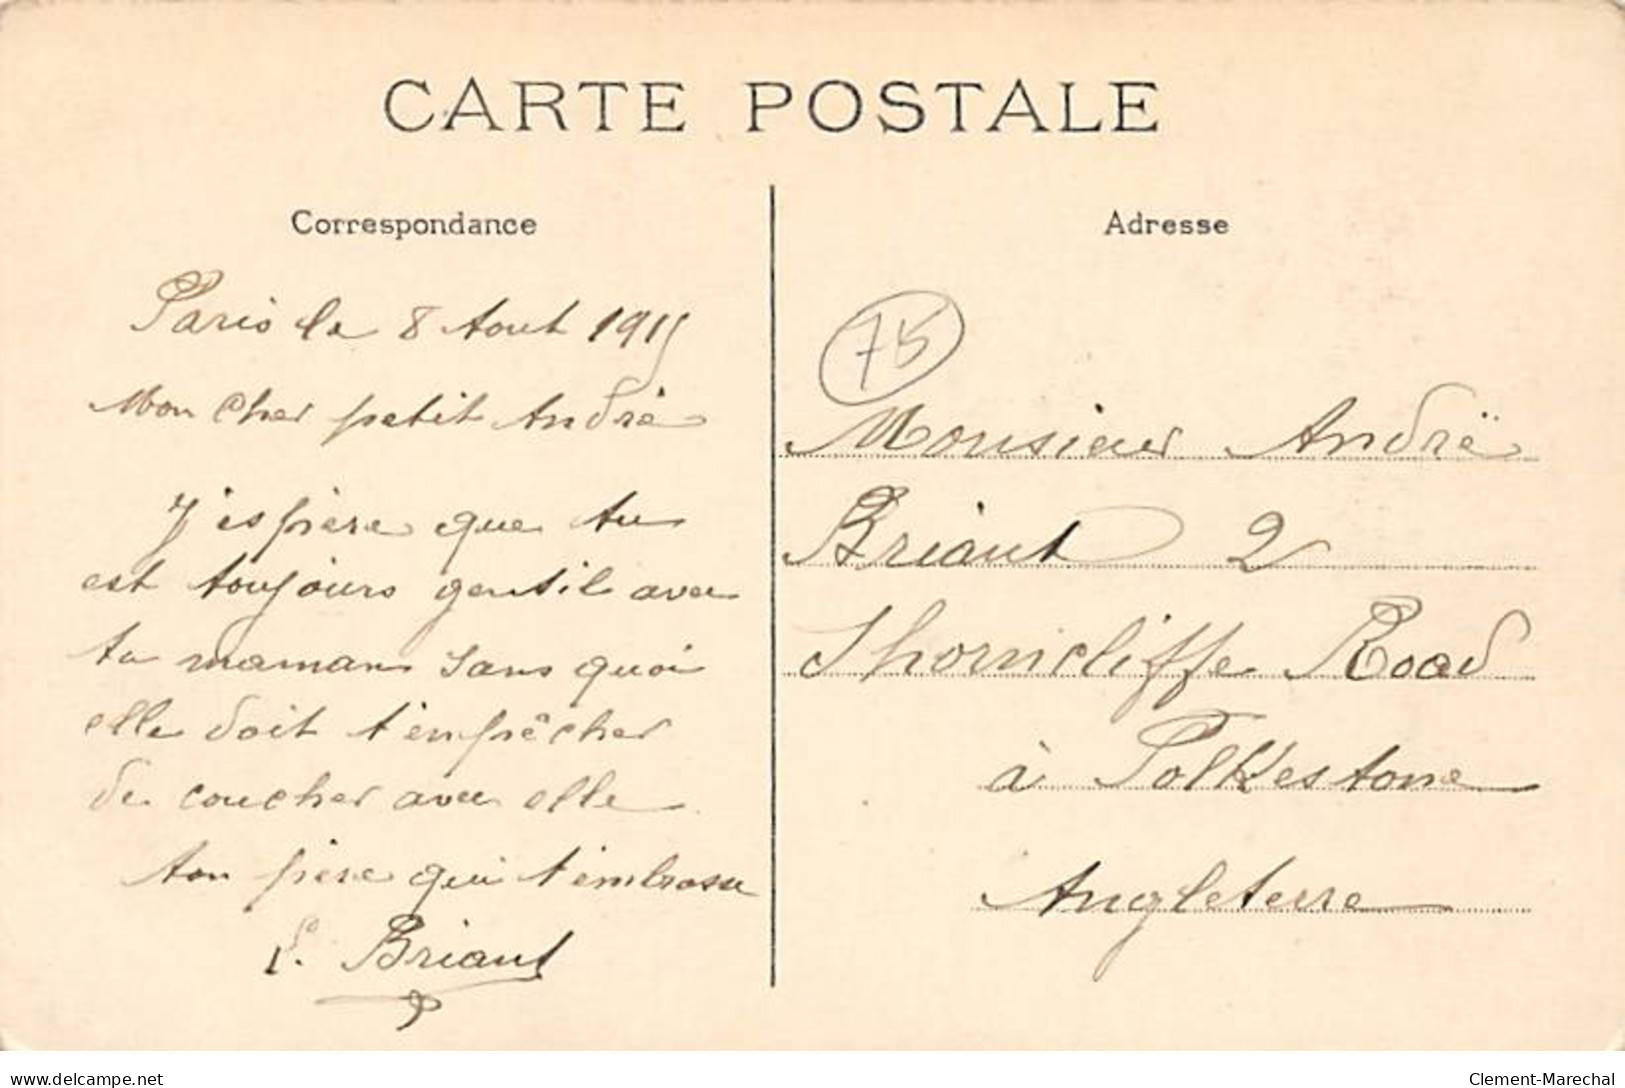 CARTE POSTALE
Correspondance
Paris le 8 Aout 1915
Mon cher petit André
J'espère que tu
est toujours gentil avec
ta maman sans quoi
elle doit t'empêcher
de coucher avec elle
ton père qui t'embrasse
L. Briant
Adresse
75
Monsieur André
Briant 2
Thorncliffe Road
à Folkestone
Angleterre
delcampe.net
Clement-Marechal